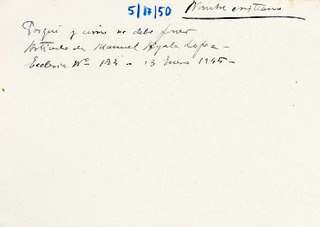 5/17/50 Nombre cristiano
Porqué y cómo se debe poner
Artículo de Manuel Ayala López -
Ecclesia Nº 183 - 13 Enero 1945 -